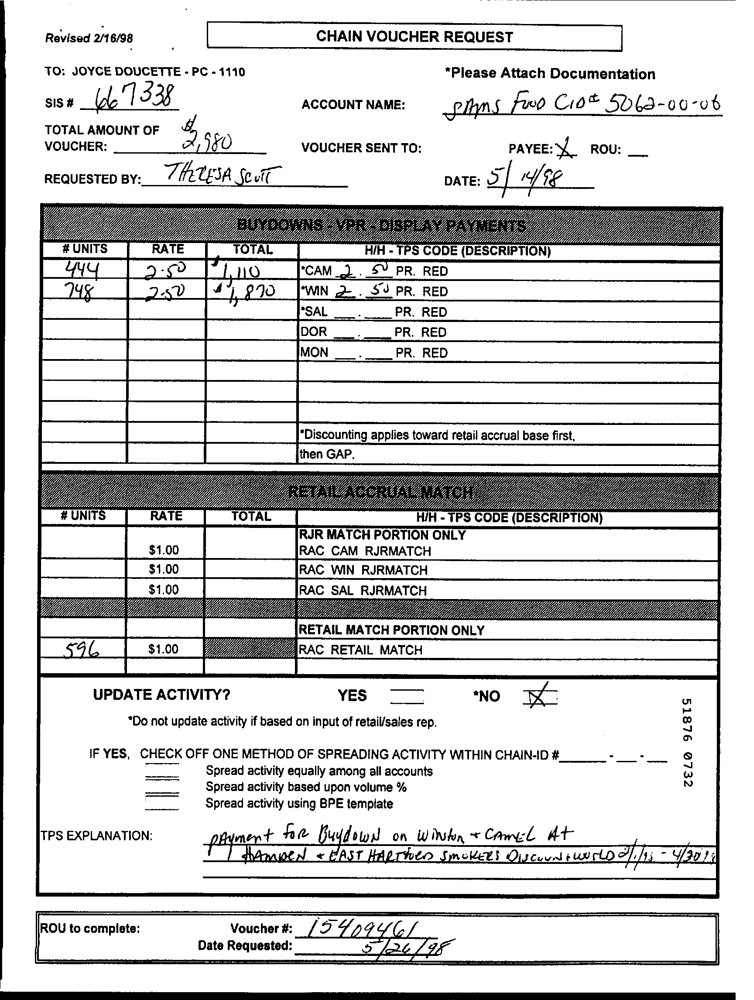 Revised 2/16/98
CHAIN VOUCHER REQUEST
TO: JOYCE DOUCETTE - PC - 1110
*Please Attach Documentation
SIS # 667338
ACCOUNT NAME: Food CID# 5062-00-06
TOTAL AMOUNT OF
VOUCHER: $2,980
VOUCHER SENT TO: PAYEE: X ROU: __
REQUESTED BY: THERESA SCOTT
DATE: 5/14/98
BUYDOWNS - VPR - DISPLAY PAYMENTS
# UNITS RATE TOTAL H/H - TPS CODE (DESCRIPTION)
444 2.50 $1,110 *CAM 2.50 PR. RED
748 2.50 $1,870 *WIN 2.50 PR. RED
*SAL __.__ PR. RED
DOR __.__ PR. RED
MON __.__ PR. RED
*Discounting applies toward retail accrual base first,
then GAP.
RETAIL ACCRUAL MATCH
# UNITS RATE TOTAL H/H - TPS CODE (DESCRIPTION)
RJR MATCH PORTION ONLY
$1.00 RAC CAM RJRMATCH
$1.00 RAC WIN RJRMATCH
$1.00 RAC SAL RJRMATCH
RETAIL MATCH PORTION ONLY
596 $1.00 RAC RETAIL MATCH
UPDATE ACTIVITY? YES *NO X
*Do not update activity if based on input of retail/sales rep.
IF YES, CHECK OFF ONE METHOD OF SPREADING ACTIVITY WITHIN CHAIN-ID #______-__-__
Spread activity equally among all accounts
Spread activity based upon volume %
Spread activity using BPE template
51876 0732
TPS EXPLANATION: payment for Buydown on Winston + CAMEL At
HAMDEN + EAST HARTFORD SMOKERS DISCOUNT WORLD 2/1/98 - 4/30/98
ROU to complete: Voucher #: 15409461
Date Requested: 5/26/98